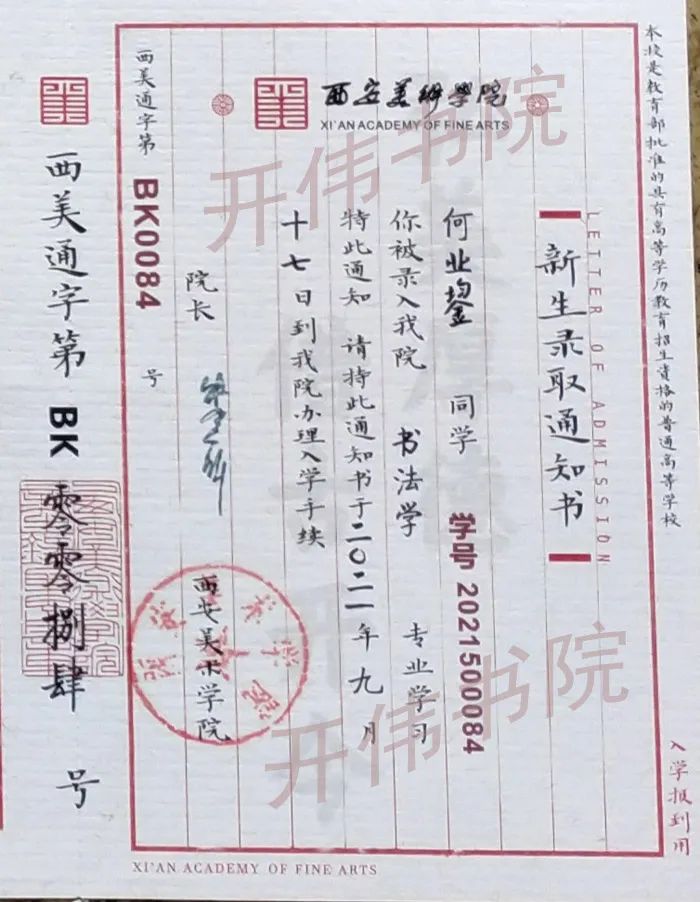 本校是教育部批准的具有高等学历教育招生资格的普通高等学校
入学报到用
西安美術學院
XI'AN ACADEMY OF FINE ARTS
新生录取通知书
LETTER OF ADMISSION
何业鋆 同学 学号 2021500084
你被录入我院 书法学 专业学习
特此通知 请持此通知书于二〇二一年九月
十七日到我院办理入学手续
院长
西安美术学院
西美通字第 BK0084 号
西美通字第 BK 零零捌肆 号
XI'AN ACADEMY OF FINE ARTS
开伟书院
开伟书院